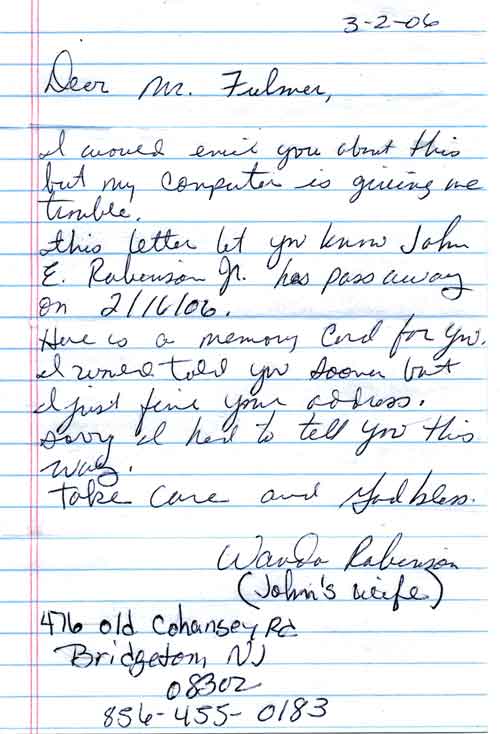 3-2-06
Dear Mr. Fulmer,
I would emil you about this
but my computer is giving me
trouble.
this letter let you know John
E. Robenson Jr. has pass away
on 2/16/06.
Here is a memory Card for you.
I would told you sooner but
I just fine your address.
sorry I had to tell you this
way.
take care and God bless.
Wanda Robenson
(John's wife)
476 old Cohansey Rd
Bridgeton, NJ
08302
856-455-0183